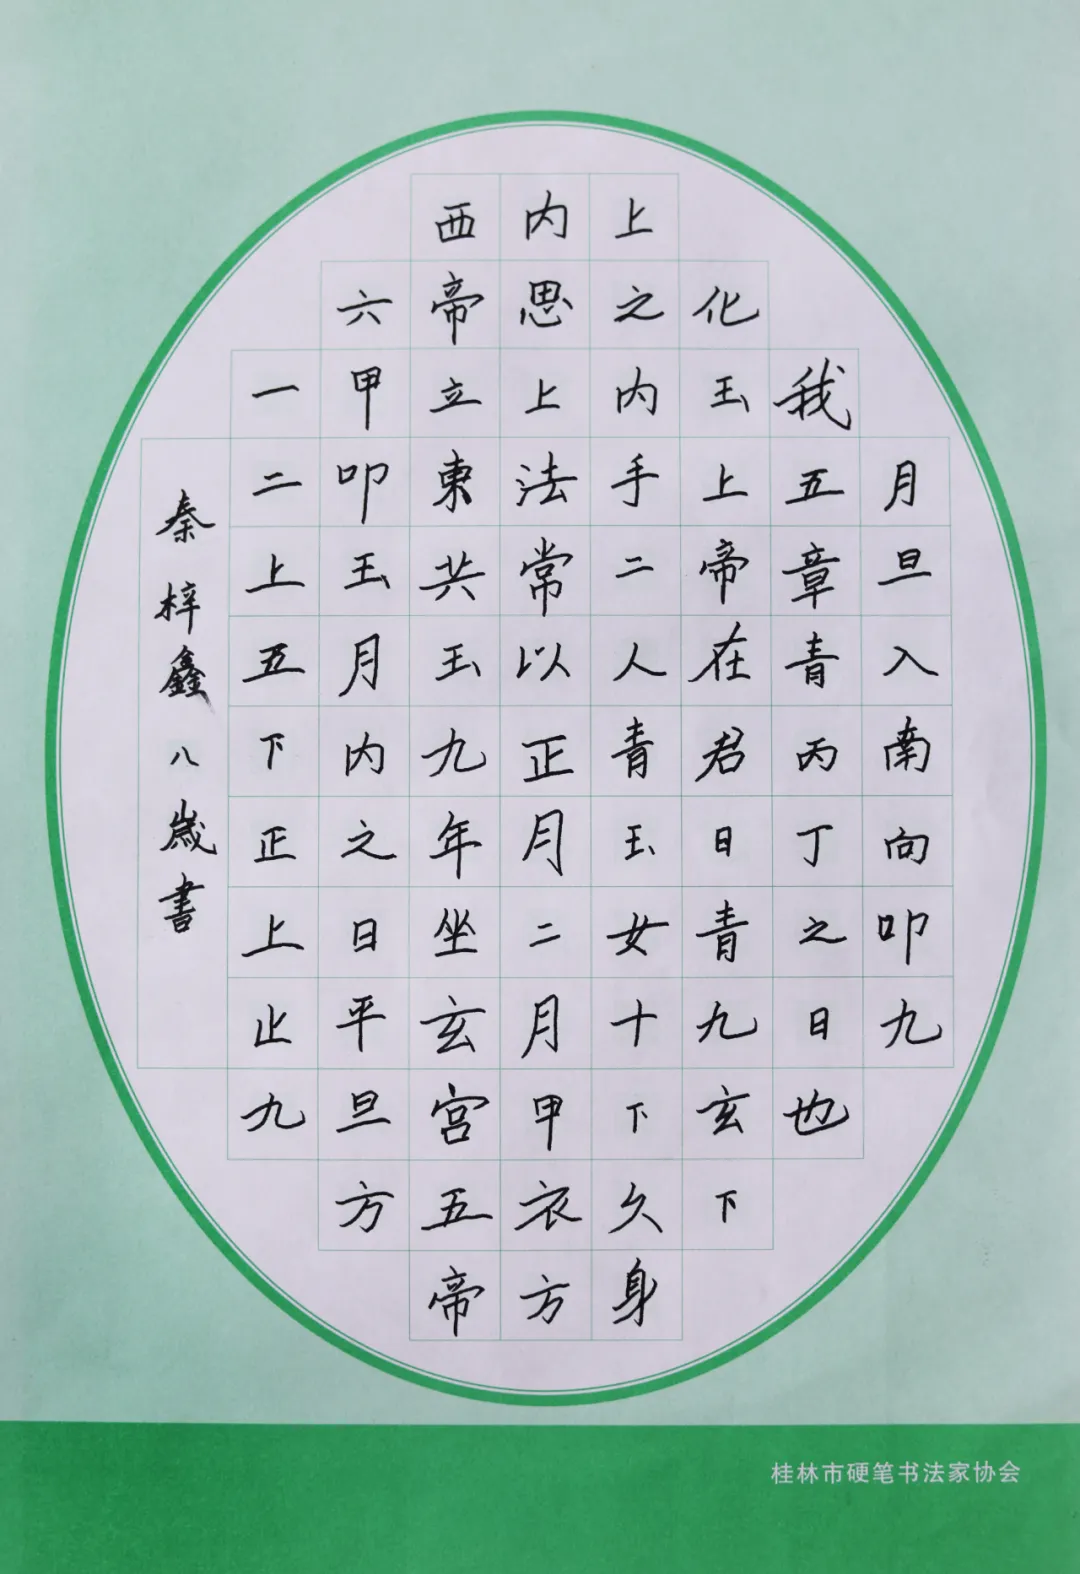 月旦入南向叩九
我五章青丙丁之日也
化玉上帝在君日青九玄下
上之内手二人青玉女十下久身
内思上法常以正月二月甲衣方
西帝立東共玉九年坐玄宫五帝
六甲叩玉月内之日平旦方
一二上五下正上止九
秦梓鑫八歲書
桂林市硬笔书法家协会